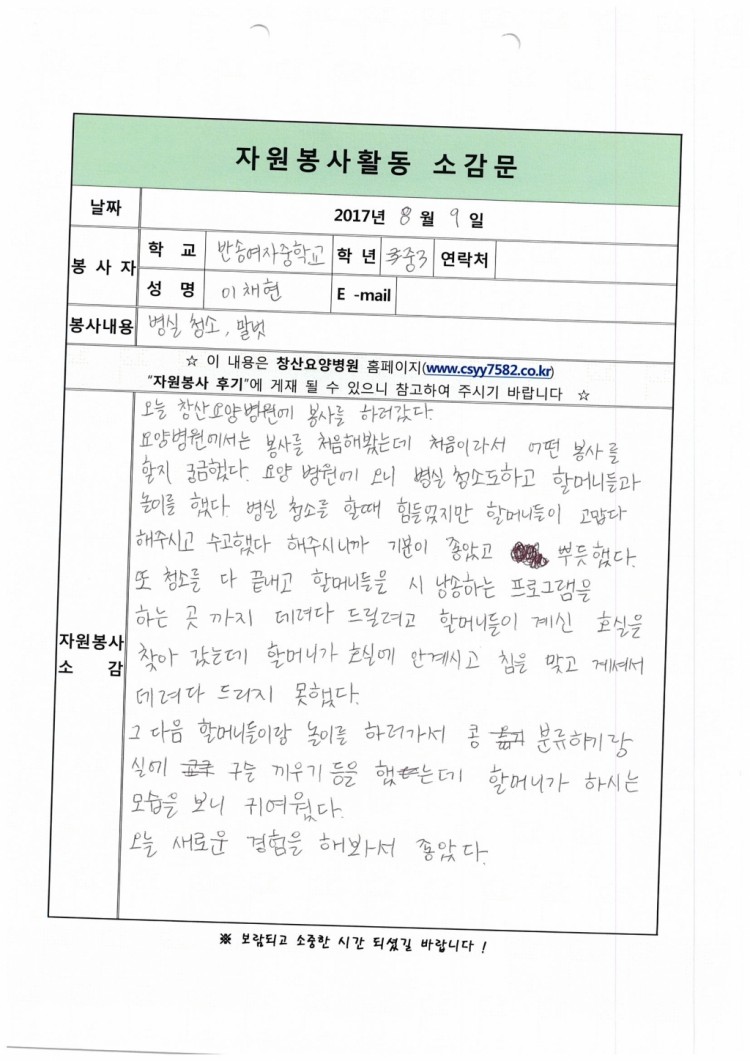 자원봉사활동 소감문
날짜 2017년 8 월 9 일
봉 사 자 학 교 반송여자중학교 학 년 중3 연락처
성 명 이채현 E -mail
봉사내용 병실 청소, 말벗
☆ 이 내용은 창산요양병원 홈페이지(www.csyy7582.co.kr)
"자원봉사 후기"에 게재 될 수 있으니 참고하여 주시기 바랍니다 ☆
자원봉사
소 감
오늘 창산요양병원에 봉사를 하러갔다.
요양병원에서는 봉사를 처음해봤는데 처음이라서 어떤 봉사를
할지 궁금했다. 요양 병원에 오니 병실 청소도하고 할머니들과
놀이를 했다. 병실 청소를 할때 힘들었지만 할머니들이 고맙다
해주시고 수고했다 해주시니까 기분이 좋았고 뿌듯했다.
또 청소를 다 끝내고 할머니들을 시 낭송하는 프로그램을
하는 곳 까지 데려다 드릴려고 할머니들이 계신 호실을
찾아 갔는데 할머니가 호실에 안계시고 침을 맞고 계셔서
데려다 드리지 못했다.
그 다음 할머니들이랑 놀이를 하러가서 콩 분류하기랑
실에 구슬 끼우기 등을 했는데 할머니가 하시는
모습을 보니 귀여웠다.
오늘 새로운 경험을 해봐서 좋았다.
※ 보람되고 소중한 시간 되셨길 바랍니다 !